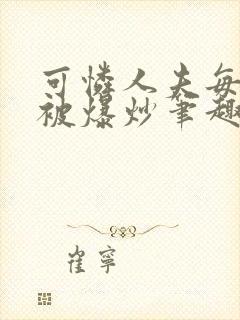 可憐人夫每
被爆炒筆趣
崔寧